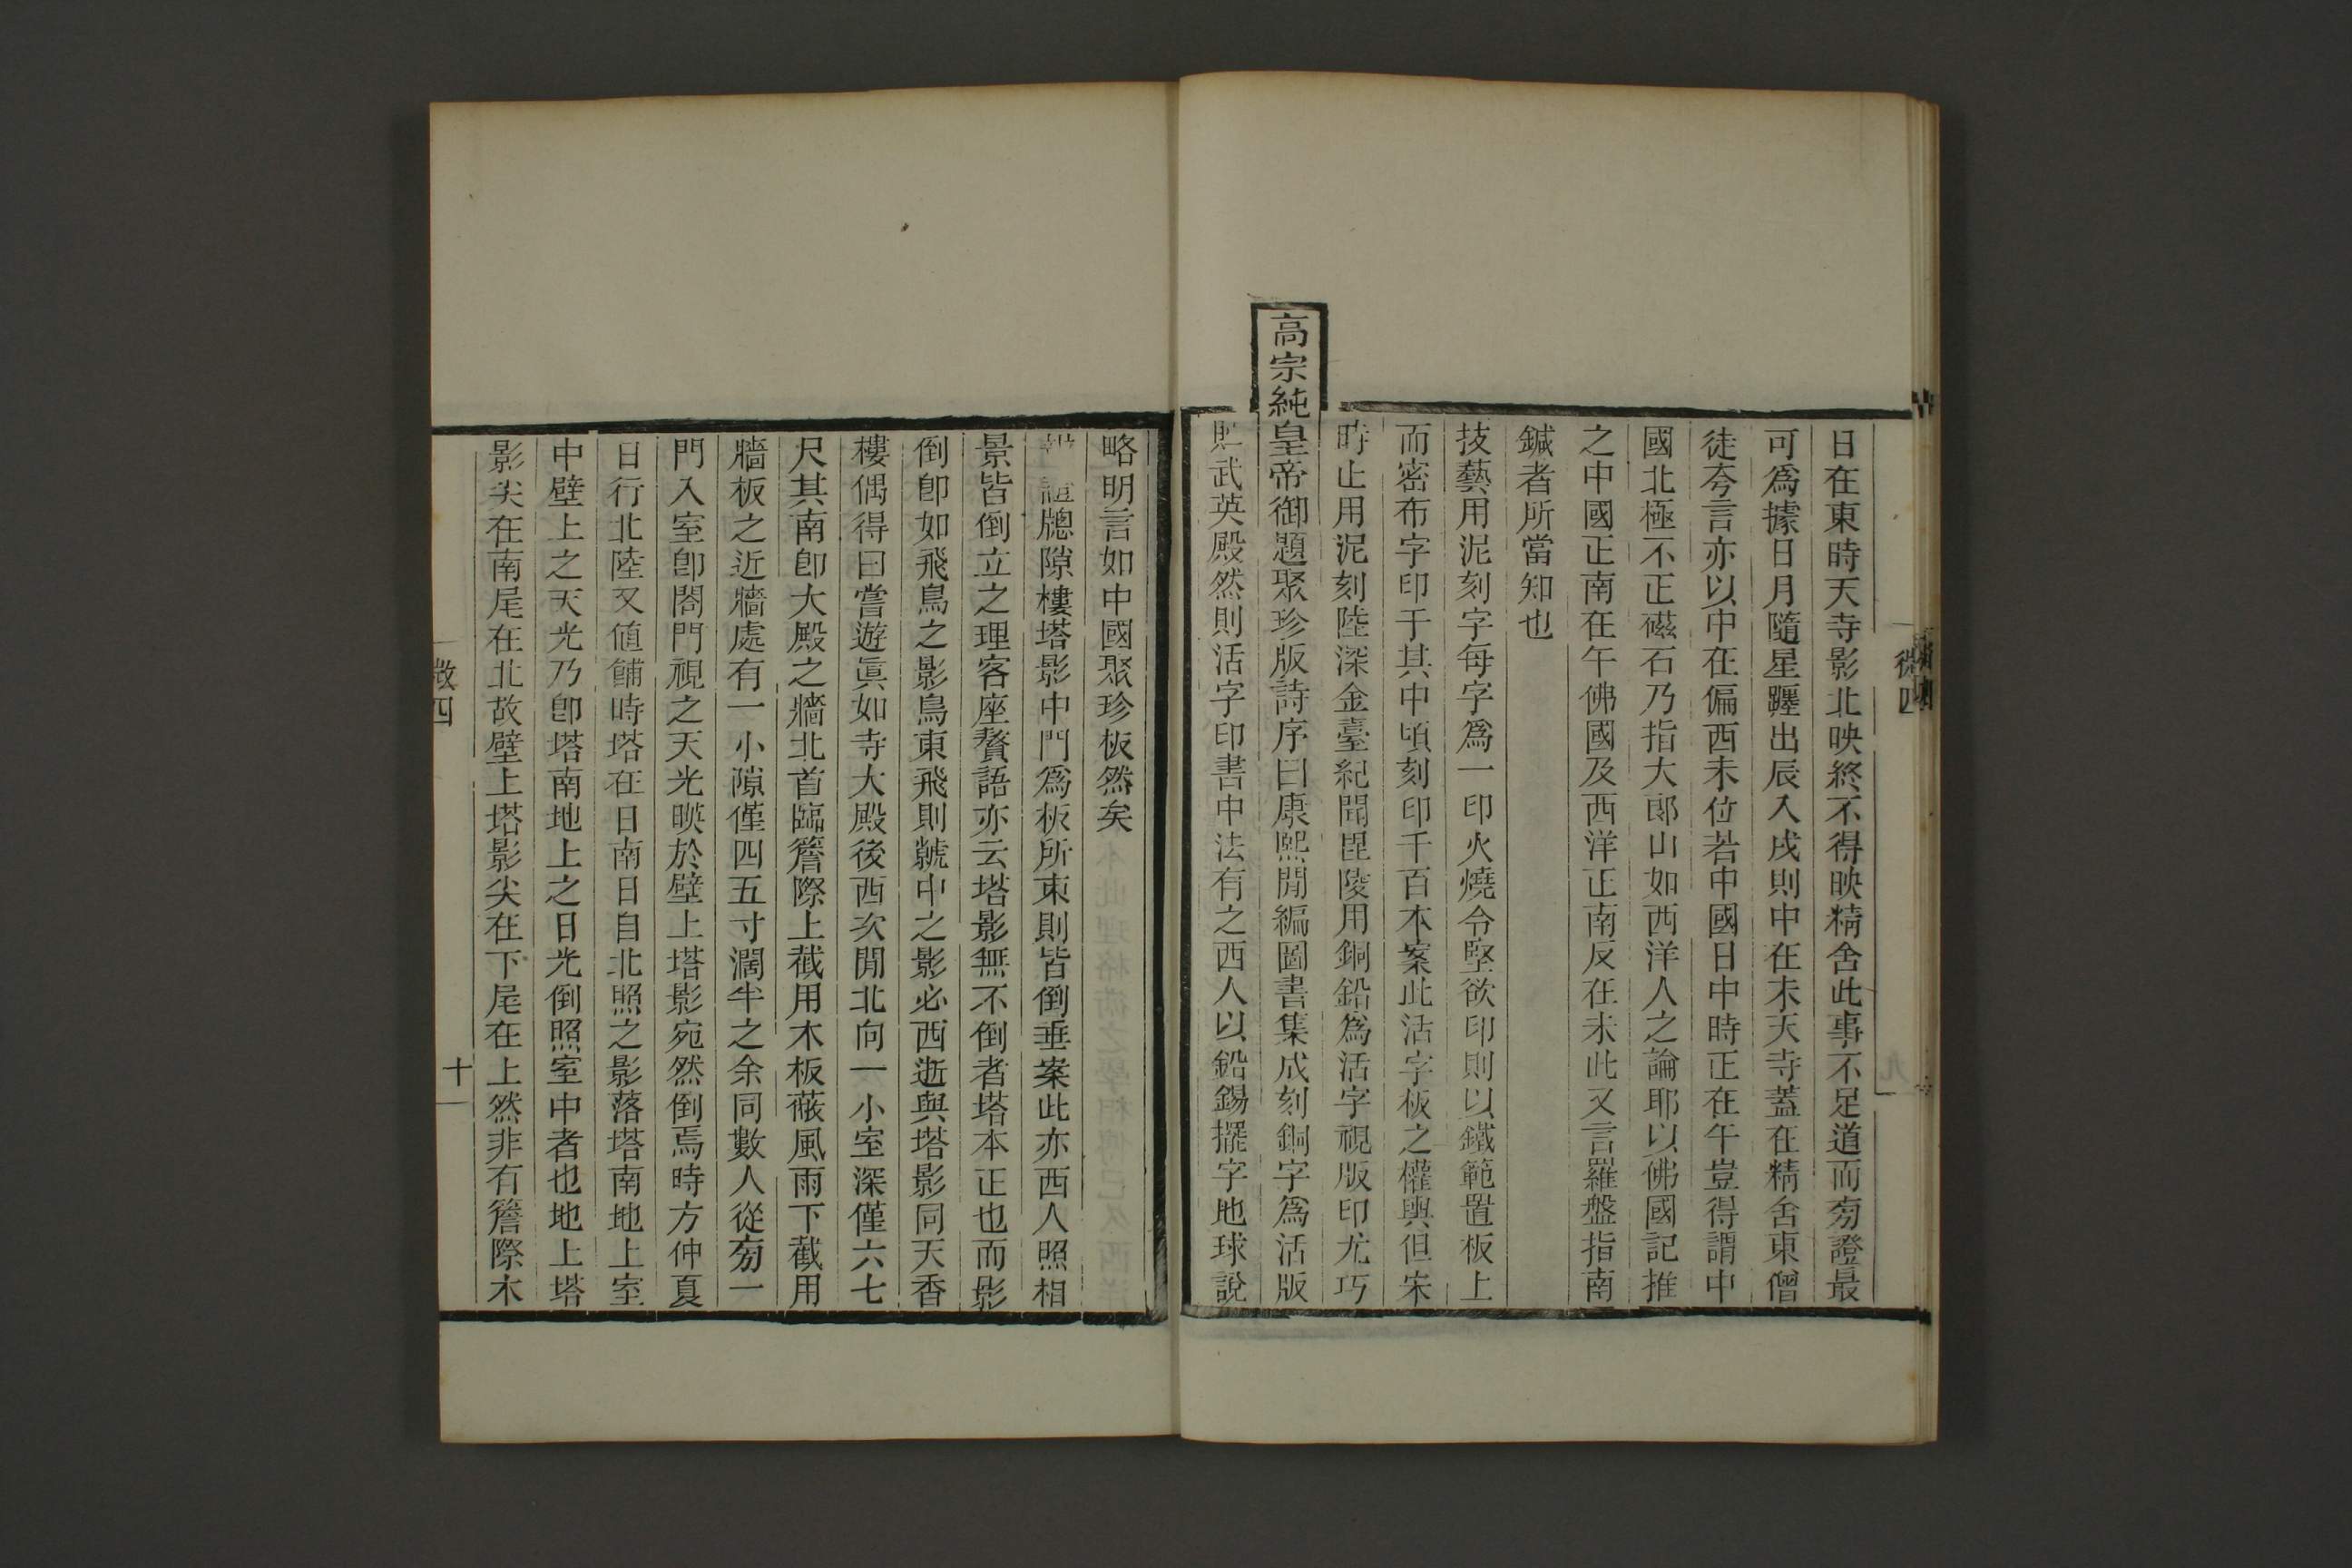 日在東時天寺影北映終不得映精舍此事不足道而旁證最
可爲據日月隨星躔出辰入戌則中在未天寺蓋在精舍東僧
徒夸言亦以中在偏西未位若中國日中時正在午豈得謂中
國北極不正磁石乃指大郞山如西洋人之論耶以佛國記推
之中國正南在午佛國及西洋正南反在未此又言羅盤指南
鍼者所當知也
技藝用泥刻字每字爲一印火燒令堅欲印則以鐵範置板上
而密布字印于其中頃刻印千百本案此活字板之權輿但宋
時止用泥刻陸深金臺紀聞毘陵用銅鉛爲活字視版印尤巧
高宗純皇帝御題聚珍版詩序曰康熙閒編圖書集成刻銅字爲活版
貯武英殿然則活字印書中法有之西人以鉛錫擺字地球說
略明言如中國聚珍板然矣
牕隙樓塔影中門爲板所束則皆倒垂案此亦西人照相
景皆倒立之理客座贅語亦云塔影無不倒者塔本正也而影
倒卽如飛鳥之影鳥東飛則虢中之影必西逝與塔影同天香
樓偶得曰嘗遊眞如寺大殿後西次閒北向一小室深僅六七
尺其南卽大殿之牆北首臨簷際上截用木板蔽風雨下截用
牆板之近牆處有一小隙僅四五寸濶半之余同數人從旁一
門入室卽閤門視之天光映於壁上塔影宛然倒焉時方仲夏
日行北陸又値餔時塔在日南日自北照之影落塔南地上室
中壁上之天光乃卽塔南地上之日光倒照室中者也地上塔
影尖在南尾在北故壁上塔影尖在下尾在上然非有簷際木
四
十